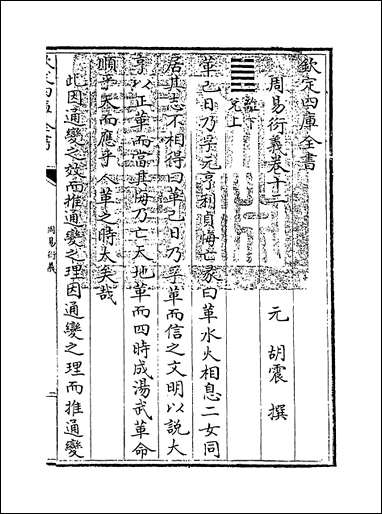 欽定四庫全書
周易衍義卷十二
元 胡震 撰
離下
兌上
革已日乃孚元亨利貞悔亡彖曰革水火相息二女同
居其志不相得曰革已日乃孚革而信之文明以說大
亨以正革而當其悔乃亡天地革而四時成湯武革命
順乎天而應乎人革之時大矣哉
此因通變之效而推通變之理因通變之理而推通變
欽定四庫全書
周易衍義